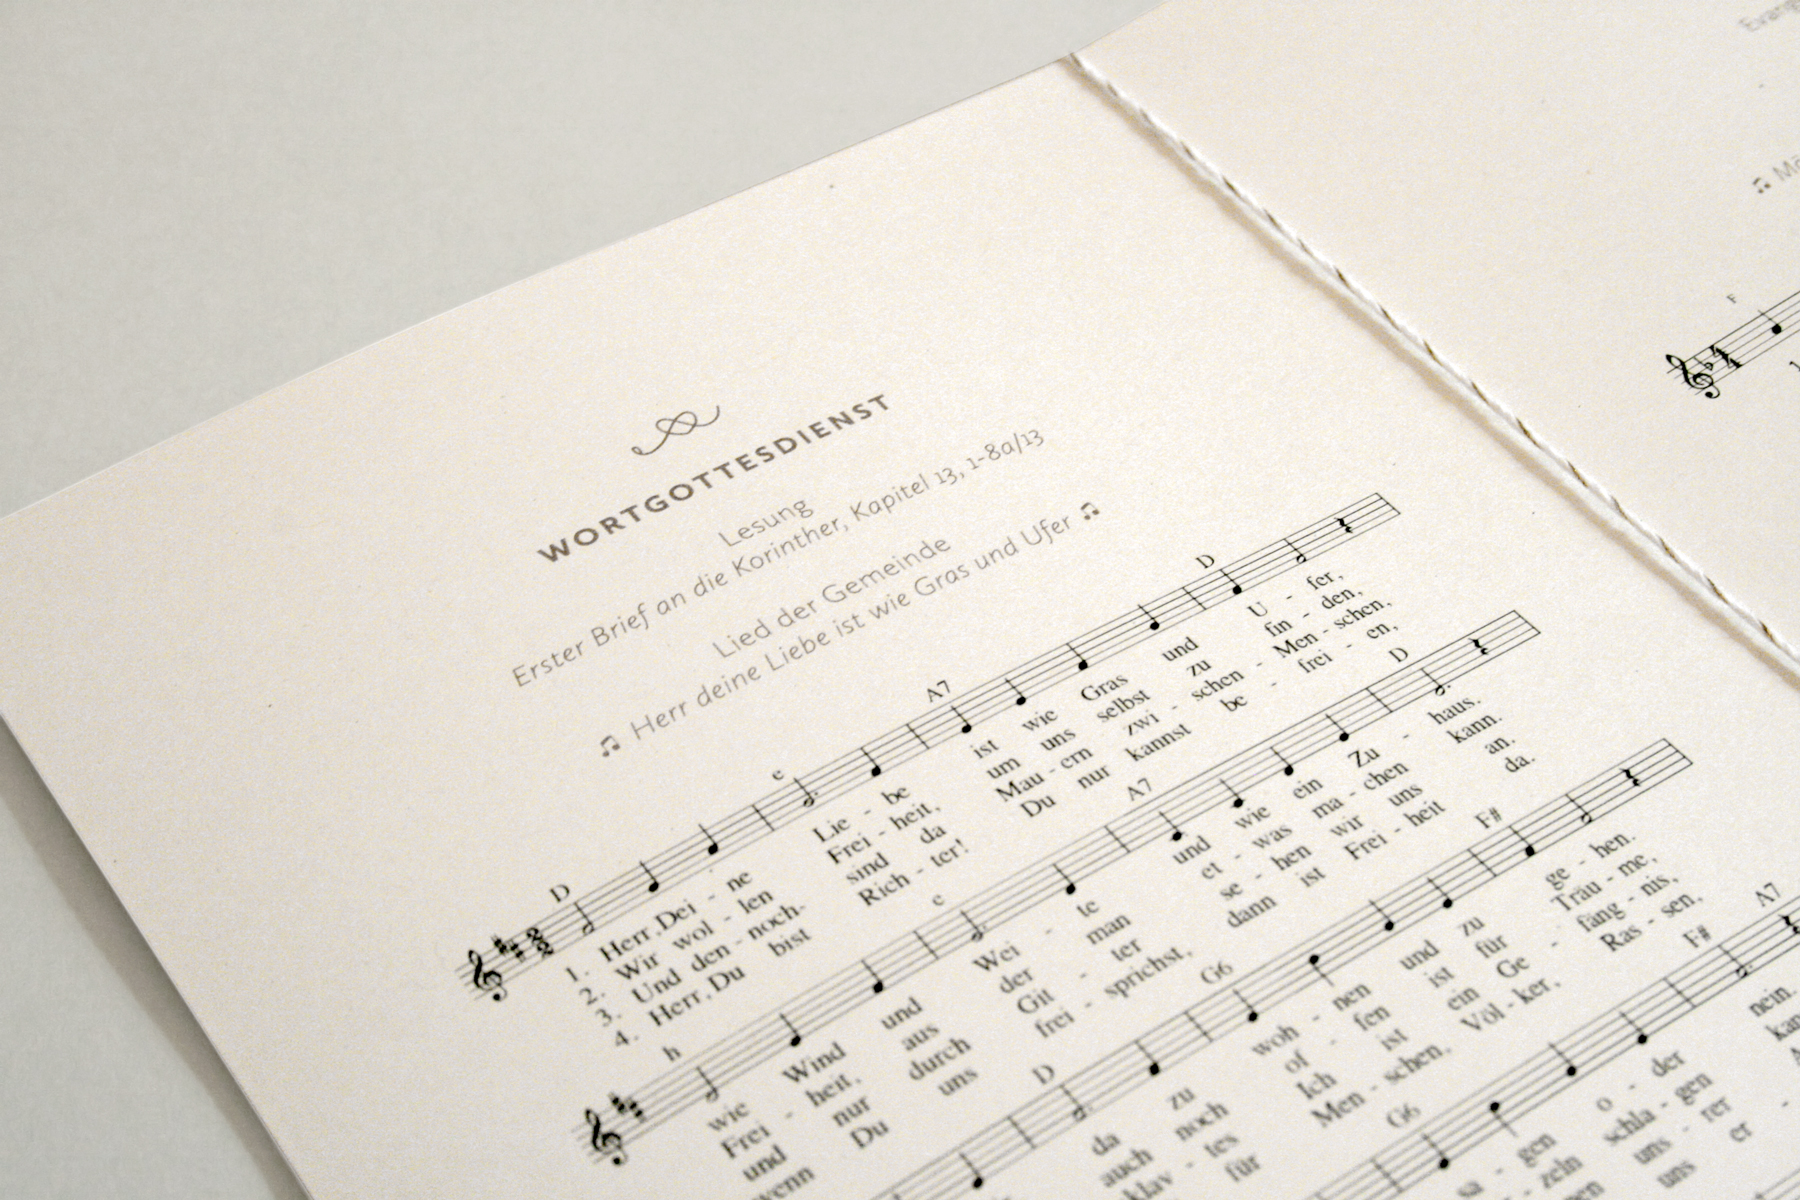 WORTGOTTESDIENST
Lesung
Erster Brief an die Korinther, Kapitel 13, 1-8a/13
Lied der Gemeinde
♫ Herr deine Liebe ist wie Gras und Ufer ♫
D e A7 D
1. Herr, Dei - ne Lie - be ist wie Gras und U - fer,
2. Wir wol - len Frei - heit, um uns selbst zu fin - den,
3. Und den - noch sind da Mau - ern zwi - schen Men - schen,
4. Herr, Du bist Rich - ter! Du nur kannst be - frei - en,
h e A7 D
wie Wind und Wei - te und wie ein Zu - haus.
Frei - heit, aus der man et - was ma - chen kann.
und nur durch Git - ter se - hen wir uns an.
wenn Du uns frei - sprichst, dann ist Frei - heit da.
D G6 F#
da zu woh - nen und zu ge - hen.
auch noch of - fen ist für Träu - me,
klav - tes Ich ist ein Ge - fäng - nis,
für Men - schen, Völ - ker, Ras - sen,
G6 F# A7
sa - gen o - der nein.
zeln schla - gen
uns - rer
uns er
F